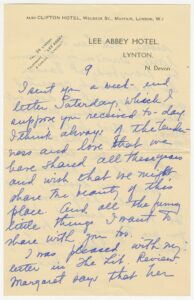 ALSO CLIFTON HOTEL, WELBECK ST., MAYFAIR, LONDON, W.1
LEE ABBEY HOTEL
LYNTON,
N. Devon
9
I sent you a week-end
letter Saturday, which I
suppose you received to-day.
I think always of the tender
ness and love that we
have shared all these years
and wish that we might
share the beauty of this
place. And all the funny
little things I want to
share with you too.
I was pleased with my
letter in The Lit. Review
Margaret says that her